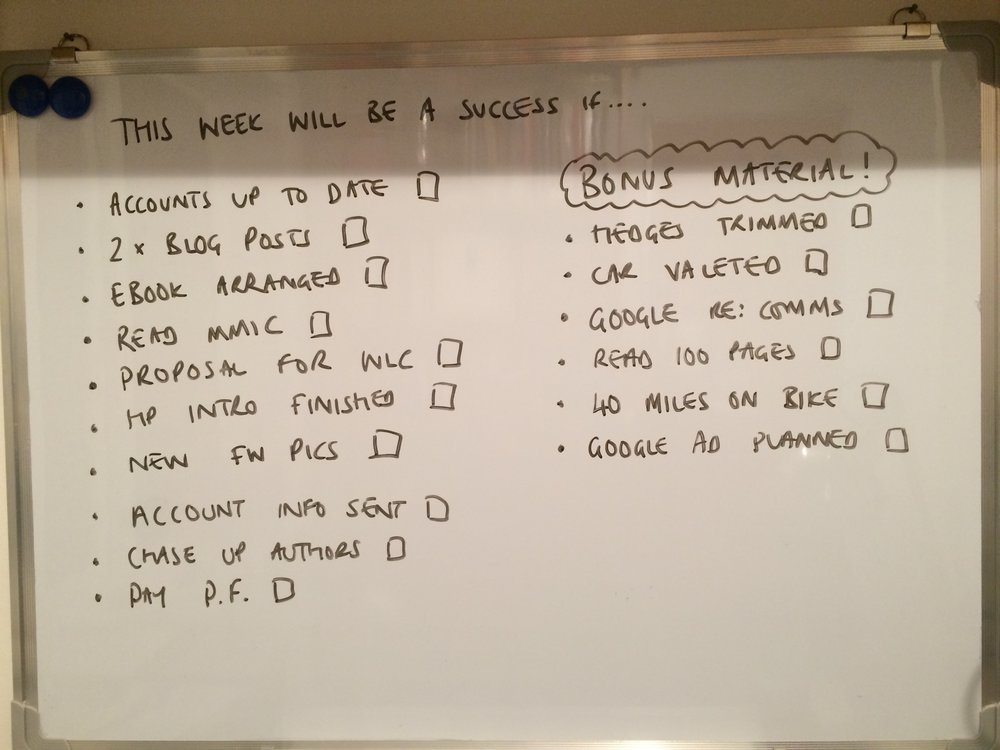 THIS WEEK WILL BE A SUCCESS IF....
• ACCOUNTS UP TO DATE
• 2 x BLOG POSTS
• EBOOK ARRANGED
• READ MMIC
• PROPOSAL FOR WLC
• HP INTRO FINISHED
• NEW FW PICS
• ACCOUNT INFO SENT
• CHASE UP AUTHORS
• PAY P.F.
BONUS MATERIAL!
• HEDGES TRIMMED
• CAR VALETED
• GOOGLE RE: COMMS
• READ 100 PAGES
• 40 MILES ON BIKE
• GOOGLE AD PLANNED